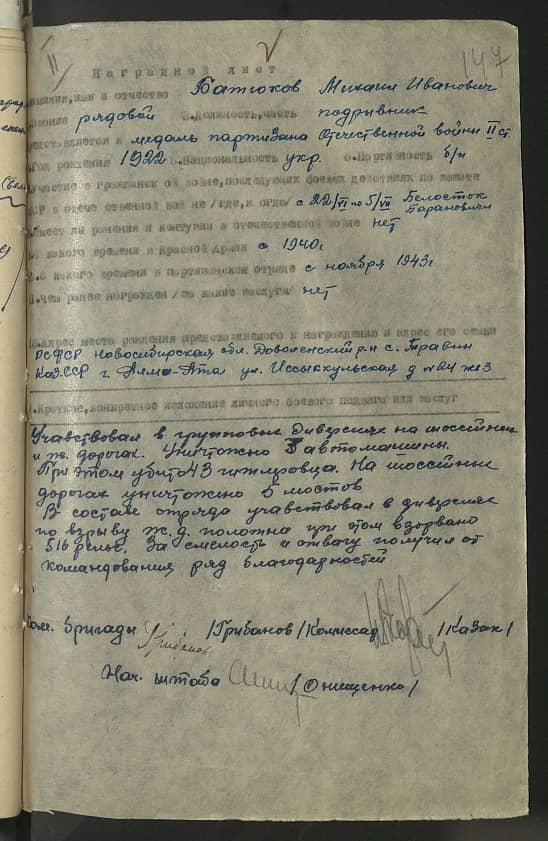 II
147
Наградной лист
Фамилия, имя и отчество Батюков Михаил Иванович
Звание рядовой 3. Должность, часть подрывник
Представляется к медаль партизана Отечественной войны II ст.
Год рождения 1922 5. Национальность укр. 6. Партийность б/п
Участие в гражданской войне, последующих боевых действиях по защите
СССР и отечественной войне /где, когда/ с 22/VI по 5/VII Белосток
Барановичи
Имеет ли ранения и контузии в отечественной войне нет
С какого времени в Красной Армии с 1940г
С какого времени в партизанском отряде с ноября 1943г
Чем ранее награжден /за какие заслуги/ нет
Адрес места рождения представляемого к награждению и адрес его семьи
РСФСР Новосибирская обл. Доволенский р-н с. Травин
КазССР г. Алма-Ата ул. Иссыккульская д №24 кв 3
1. Краткое, конкретное изложение личного боевого подвига или заслуг
Учавствовал в групповых диверсиях на шоссейных
и ж. дорогах. Уничтожено 5 автомашины.
При этом убито 43 гитлеровца. На шоссейных
дорогах уничтожено 5 мостов
В составе отряда учавствовал в диверсиях
по взрыву ж.д. полотна при этом взорвано
516 рельс. За смелость и отвагу получил от
командования ряд благодарностей
Ком. бригады Грибанов /Грибанов/ Комиссар /Казак/
Нач. штаба /Онищенко/